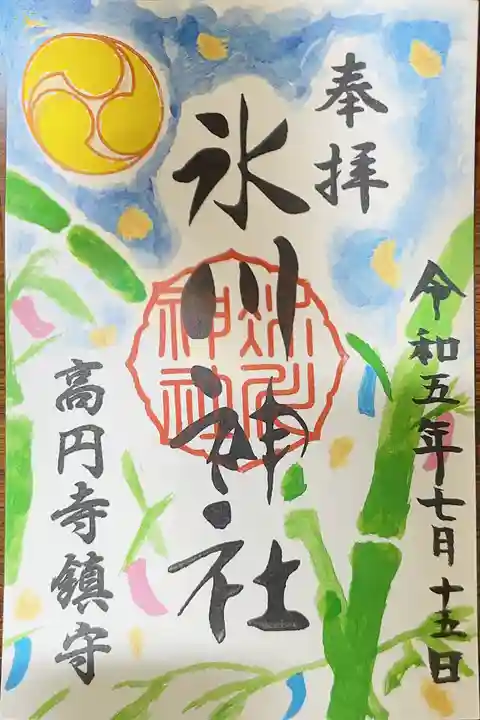 奉拝
令和五年七月十五日
氷川神社
高円寺鎮守